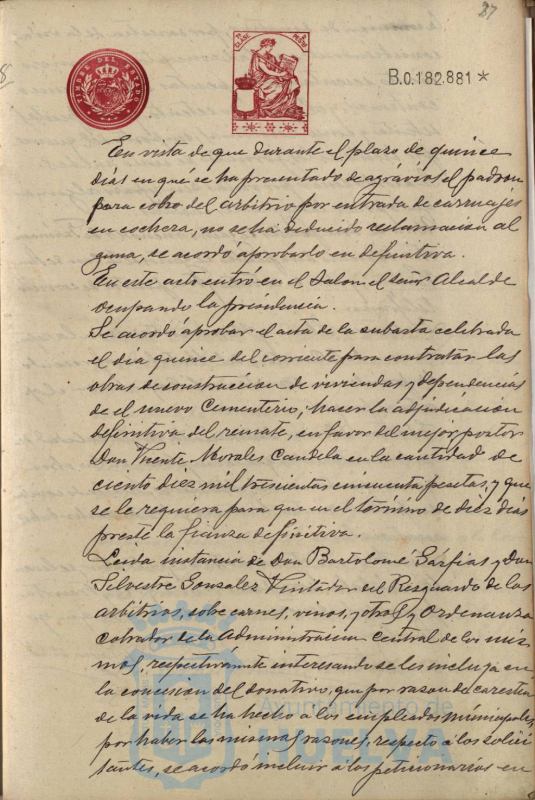 87
TIMBRE DEL ESTADO
B.0.182.881*
En vista de que durante el plazo de quince
dias en qué se ha presentado de agrávios el padron
para cobro del arbitrio por entrada de carruajes
en cochera, no se ha deducido reclamacion al
guna, se acordó aprobarlo en definitiva.
En este acto entró en el Salon el señor Alcalde
ocupando la presidencia.
Se acordó aprobar el acta de la subasta celebrada
el dia quince del corriente para contratar las
obras de construccion de viviendas y dependencias
de el nuevo Cementerio, hacer la adjudicacion
definitiva del remate, en favor del mejor postor
Don Vicente Morales Candela en la cantidad de
ciento diez mil trescientas cincuenta pesetas, y que
se le requiera para que en el término de diez dias
preste la fianza definitiva.
Leida instancia de Don Bartolomé Garfias y Don
Silvestre Gonzalez del Resguardo de los
arbitrios, sobre carnes, vinos, y otras y Ordenanza
cobrador de la Administracion Central de los mis
mos, respectivamente interesando se les incluya en
la concesion del donativo, que por razon de carestia
de la vida se ha hecho á los empleados municipales,
por haber las mismas razones, respecto á los solici
tantes, se acordó incluir á los peticionarios en
Ayuntamiento de
HUELVA